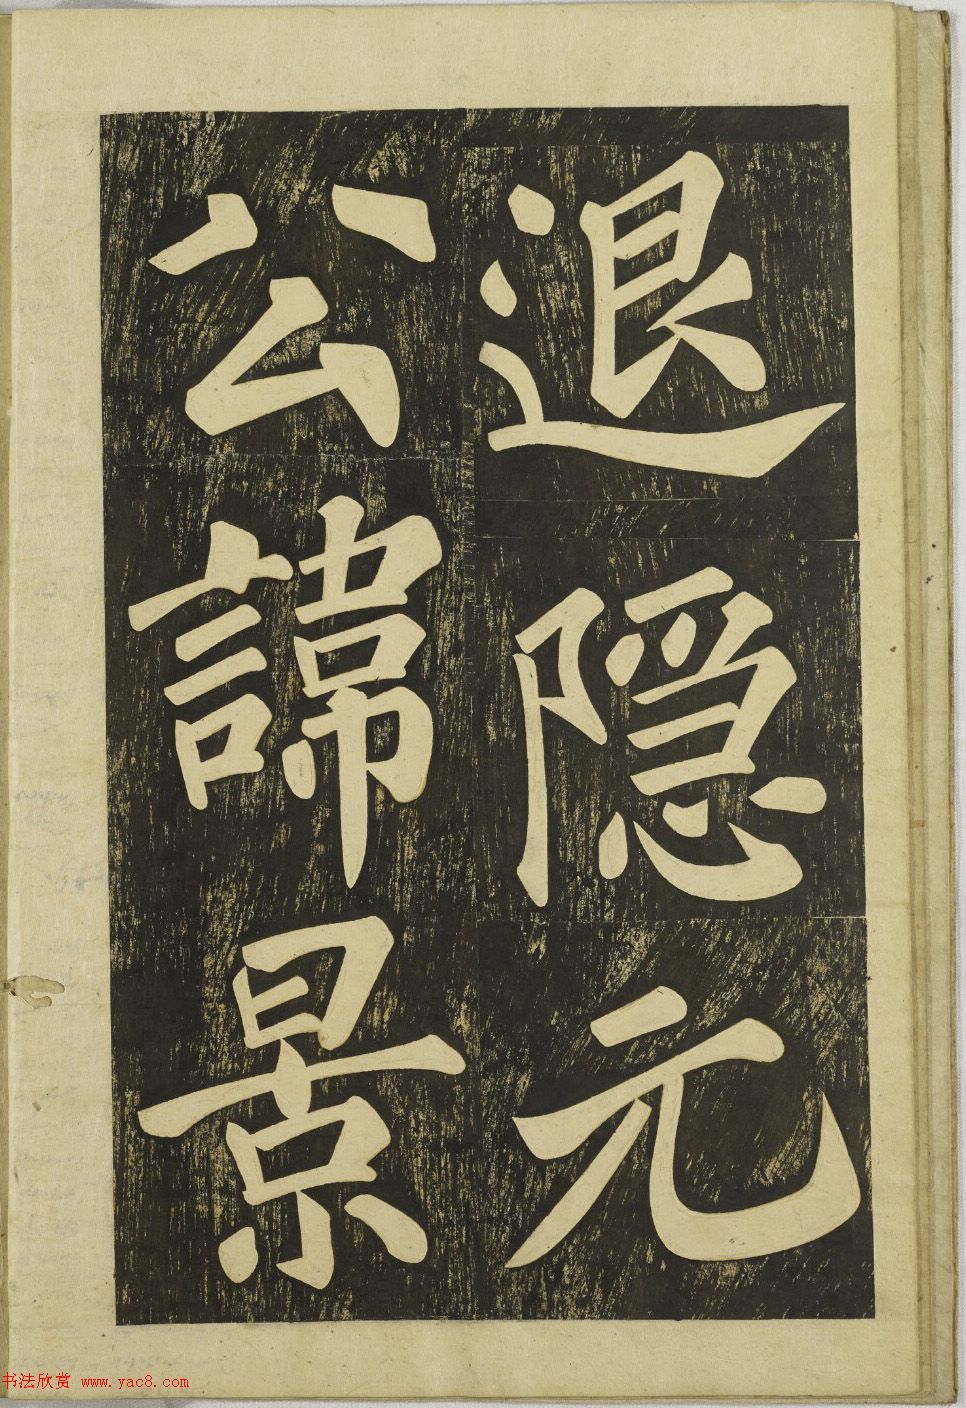 退隱元
公諱景
书法欣赏 www.yac8.com